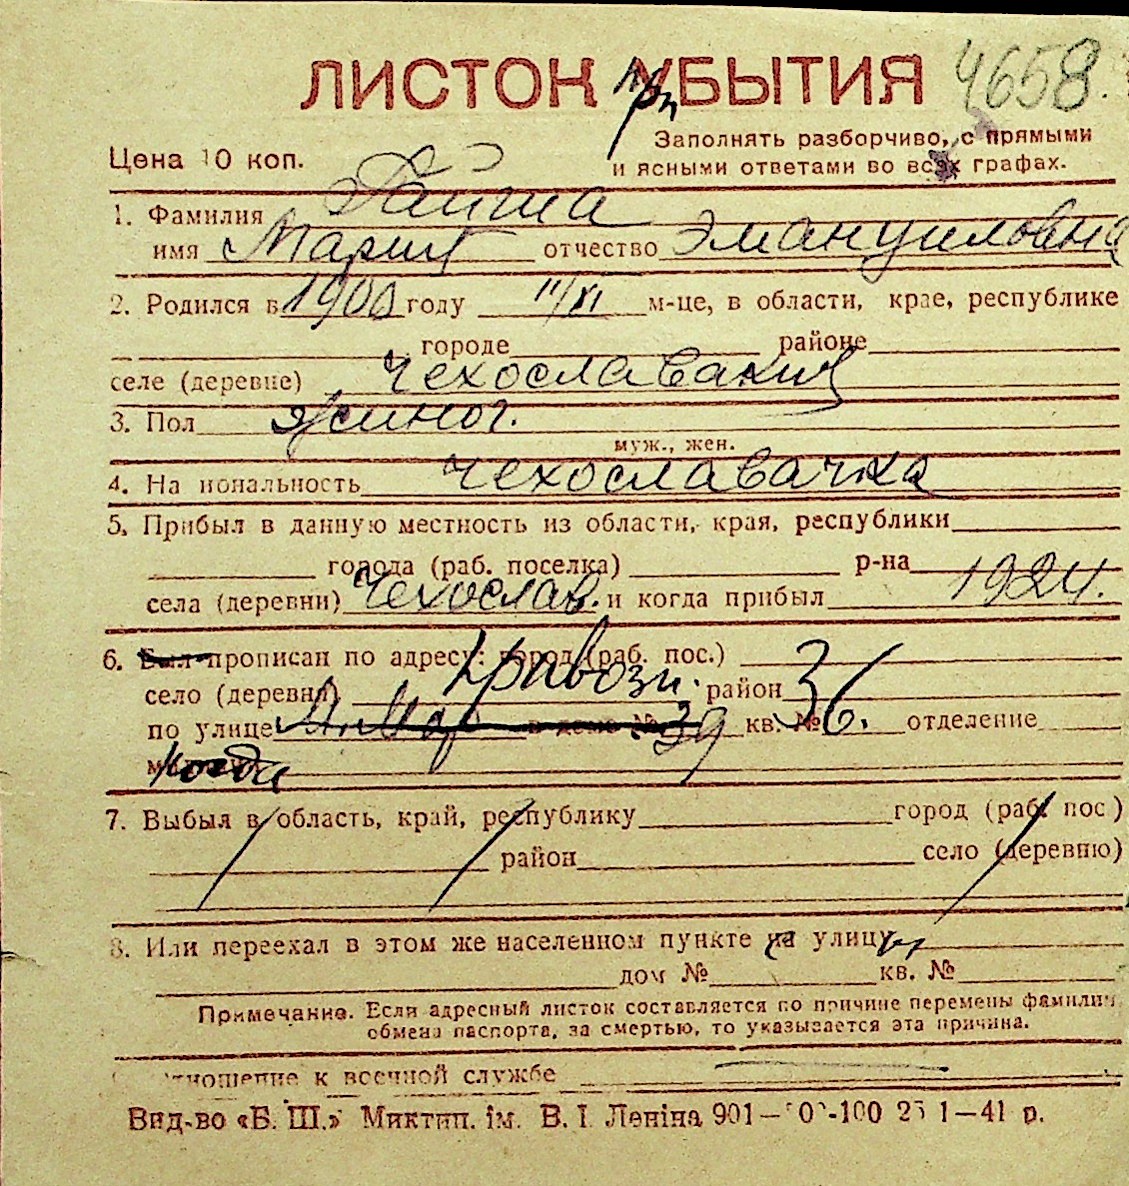 ЛИСТОК УБЫТИЯ 4658.
При
Заполнять разборчиво, с прямыми
Цена 10 коп. и ясными ответами во всех графах.
1. Фамилия
имя Мария отчество Эмануиловна
2. Родился в 1900 году 11/XI м-це, в области, крае, республике
городе районе
селе (деревне) Чехославакия
3. Пол
муж., жен.
4. На иональность Чехославачка
5. Прибыл в данную местность из области, края, республики
города (раб. поселка) р-на
села (деревни) Чехослав. и когда прибыл 1924.
6. Был прописан по адресу: город (раб. пос.)
село (деревня) Кривозн. район
по улице в доме № 39 кв. № 36. отделение
7. Выбыл в область, край, республику город (раб. пос)
район село (деревню)
8. Или переехал в этом же населенном пункте на улицу
дом № кв. №
Примечание. Если адресный листок составляется по причине перемены фамилии,
обмена паспорта, за смертью, то указывается эта причина.
тношение к военной службе
Вид-во «Б. Ш.» Миктип. ім. В. І. Леніна 901— 0 -100 25 1—41 р.